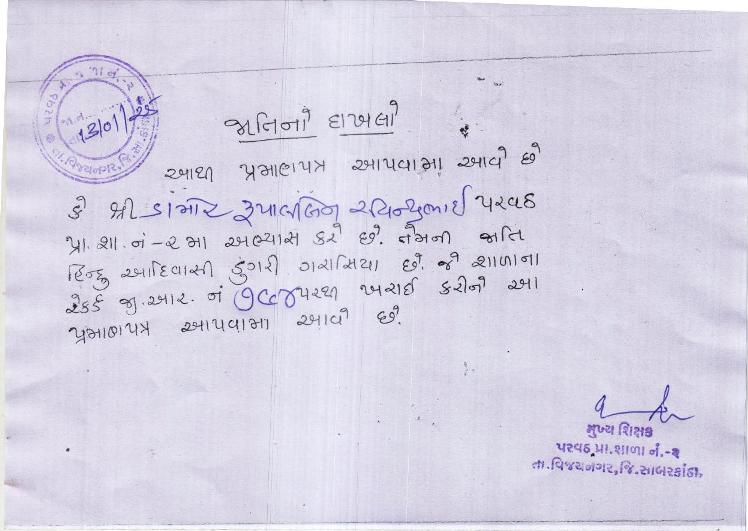 પરવઠ પ્રા. શાળા નં.-૨
જા.નં.
તા. 13/01/25
તા.વિજયનગર,જિ.સા.કાંઠા
જાતિનો દાખલો
આથી પ્રમાણપત્ર આપવામાં આવે છે
કે શ્રી ડામોર રૂપાલબેન રવિન્દ્રભાઈ પરવઠ
પ્રા.શા.નં-૨ મા અભ્યાસ કરે છે. તેમની જાતિ
હિન્દુ આદિવાસી ડુંગરી ગરાસિયા છે. જે શાળાના
રેકર્ડ જી.આર. નં ૭૯૪ પરથી ખરાઈ કરીને આ
પ્રમાણપત્ર આપવામા આવે છે.
મુખ્ય શિક્ષક
પરવઠ પ્રા.શાળા નં.-૨
તા.વિજયનગર,જિ.સાબરકાંઠા.